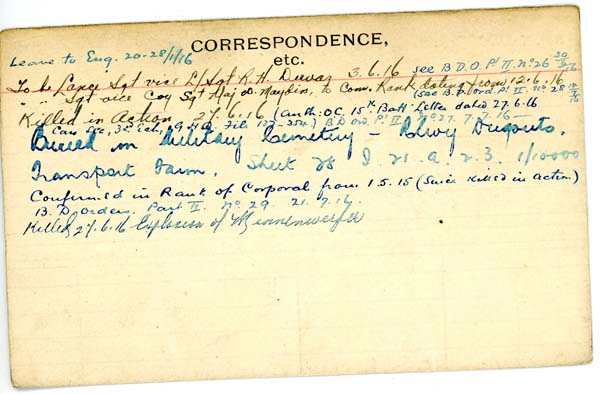 CORRESPONDENCE,
etc.
Leave to Eng. 20-28/1/16
To be Lance Sgt vice L/Sgt R.H. 3.6.16 see B.D.O. Pt II. No 26 30/6/16
" " Sgt vice Coy Sgt Maj D. to Com. Rank dating from 12.6.16
(see B.D. Ord. Pt II. No 28
Killed in Action 27.6.16 Auth: OC, 15th Batt Letter dated 27.6.16
Can Sec, 3rd Ech, G.H.Q. File B D Ord. Pt II No 27. 7.7.16 —
Buried in Military Cemetery — Rlwy Dugouts,
Transport Farm. Sheet 28 I. 21. a. 2.3. 1/10000
Confirmed in Rank of Corporal from 1.5.15 (Since Killed in action)
13. D. Orders. Part II. No 29. 21.7.16.
Killed 27.6.16 Explosion of Minnenwerfer